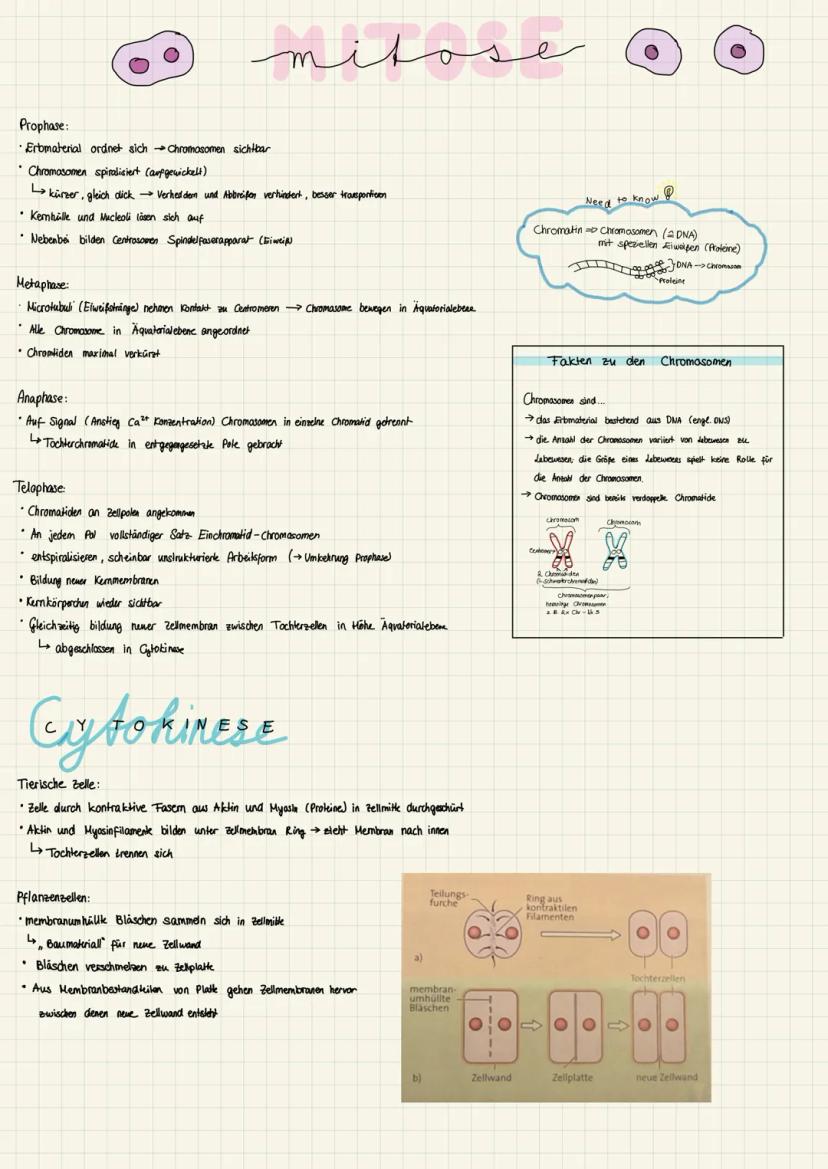 MITOSE
mitose
Prophase:
· Erbmaterial ordnet sich → Chromosomen sichtbar
· Chromosomen spiralisiert (aufgewickelt)
↳ kürzer, gleich dick → Verheddern und Abbreißen verhindert, besser transportieren
· Kernhülle und Nucleoli lösen sich auf
· Nebenbei bilden Centrosomen Spindelfaserapparat (Eiweiß)
Metaphase:
· Microtubuli (Eiweißstränge) nehmen Kontakt zu Centromeren → Chromosome bewegen in Äquatorialebene
· Alle Chromosome in Äquatorialebene angeordnet
· Chromtiden maximal verkürzt
Anaphase:
· Auf Signal (Anstieg Ca²⁺ Konzentration) Chromosomen in einzelne Chromatid getrennt
↳ Tochterchromatide in entgegengesetzte Pole gebracht
Telophase:
· Chromatiden an Zellpolen angekommen
· An jedem Pol vollständiger Satz Einchromatid-Chromosomen
· entspiralisieren, scheinbar unstrukturierte Arbeitsform (→ Umkehrung Prophase)
· Bildung neuer Kernmembranen
· Kernkörperchen wieder sichtbar
· Gleichzeitig bildung neuer Zellmembran zwischen Tochterzellen in Höhe Äquatorialebene
↳ abgeschlossen in Cytokinese
Need to know
Chromatin => Chromosomen (2 DNA)
mit speziellen Eiweißen (Proteine)
DNA → Chromosom
Proteine
Fakten zu den Chromosomen
Chromosomen sind...
→ das Erbmaterial bestehend aus DNA (engl. DNS)
→ die Anzahl der Chromosomen variiert von Lebewesen zu
Lebewesen, die Größe eines Lebewesens spielt keine Rolle für
die Anzahl der Chromosomen.
→ Chromosomen sind bereits verdoppelte Chromatide
Chromosom Chromosom
Centromer
2 Chromatiden
(= Schwesterchromatiden)
Chromosomenpaar;
homologe Chromosomen
Cytokinese
CYTOKINESE
Tierische Zelle:
· Zelle durch kontraktive Fasern aus Aktin und Myosin (Proteine) in Zellmitte durchgeschürt
· Aktin und Myosinfilamente bilden unter Zellmembran Ring → zieht Membran nach innen
↳ Tochterzellen trennen sich
Pflanzenzellen:
· membranumhüllte Bläschen sammeln sich in Zellmitte
↳ „Baumaterial" für neue Zellwand
· Bläschen verschmelzen zu Zellplatte
· Aus Membranbestandteilen von Platte gehen Zellmembranen hervor
zwischen denen neue Zellwand entsteht
Teilungs-
furche
Ring aus
kontraktilen
Filamenten
a)
Tochterzellen
membran-
umhüllte
Bläschen
b)
Zellwand
Zellplatte
neue Zellwand